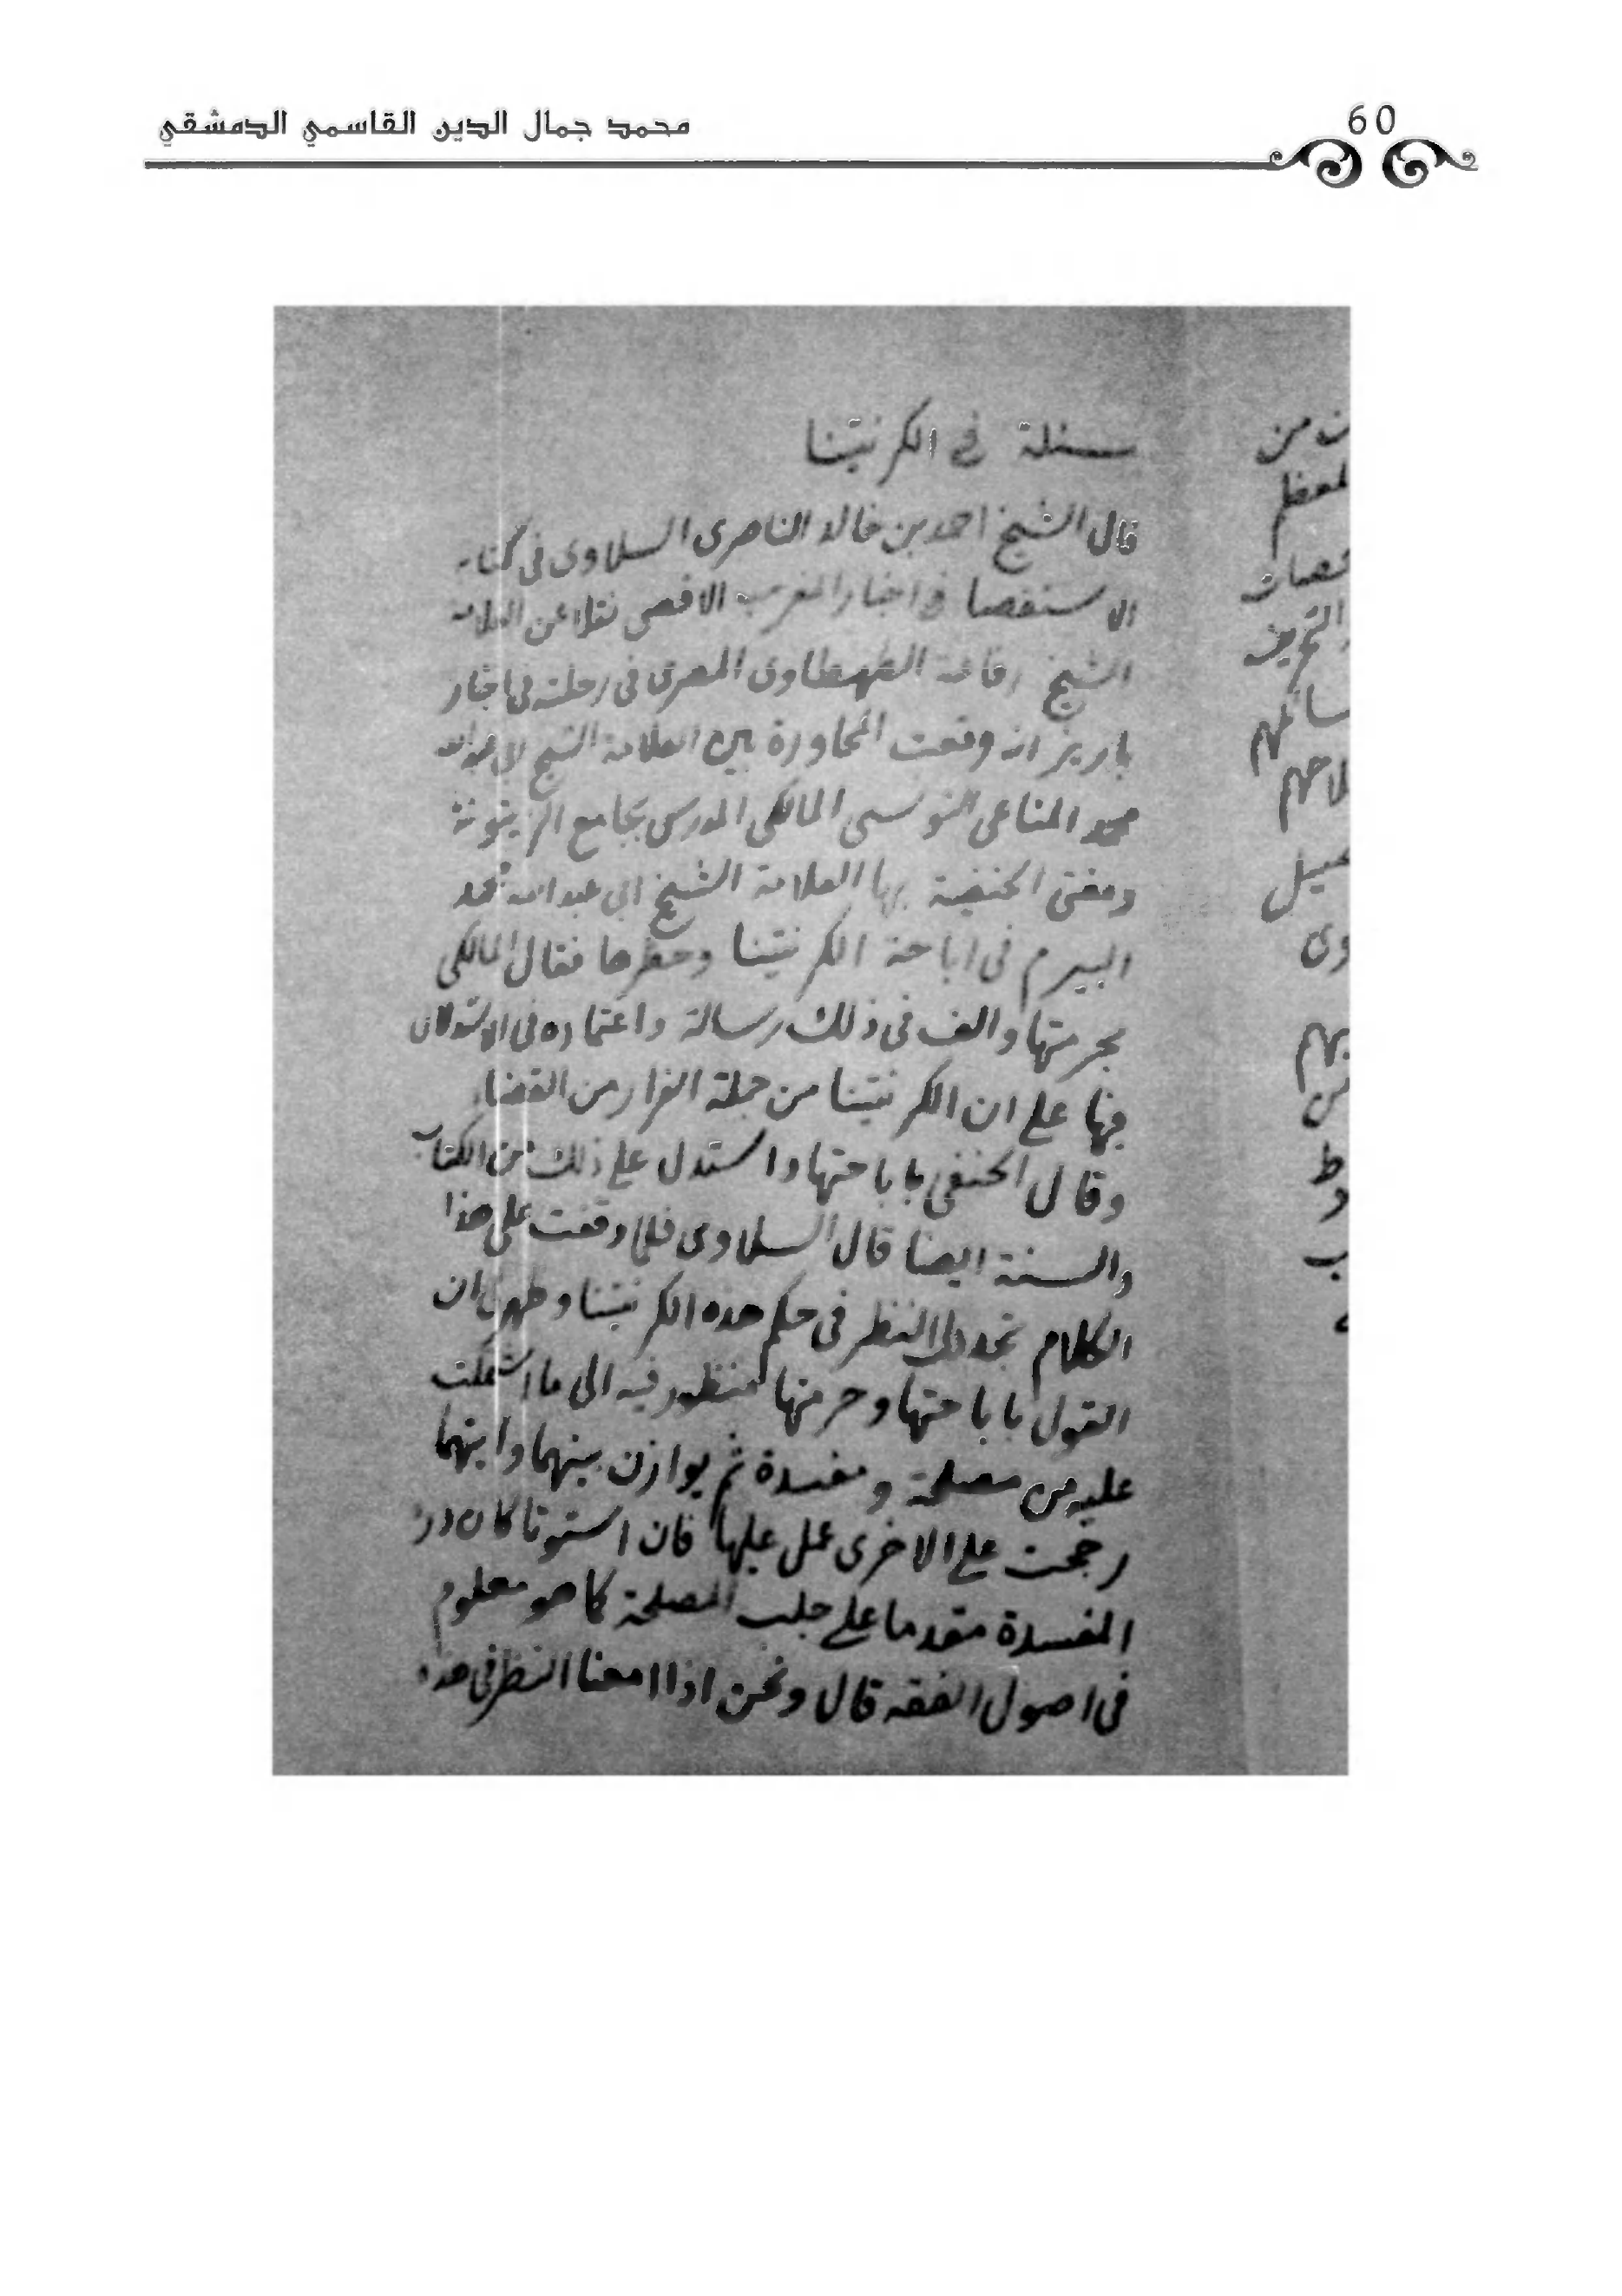 60
محمد جمال الدين القاسمي الدمشقي
مسئلة في الكرنتينا
قال الشيخ احمد بن خالد الناصرى السلاوى فى كتابه
الاستقصا فى اخبار المغرب الاقصى نقلا عن العلامة
الشيخ رفاعة الطهطاوى المصرى فى رحلته فى اخبار
باريز انه وقعت المحاورة بين العلامة الشيخ ابى عبدالله
محمد المناعى التونسى المالكى المدرس بجامع الزيتونة
ومفتى الحنفية بها العلامة الشيخ ابى عبد الله محمد
البيرم فى اباحة الكرنتينا وحظرها فقال المالكى
بحرمتها والف فى ذلك رسالة واعتماده فى الاستدلال
فيها على ان الكرنتينا من جملة الفرار من القضا
وقال الحنفى باباحتها واستدل على ذلك من الكتاب
والسنة ايضا قال السلاوى فلما وقفت على هذا
الكلام تجدد لى النظر فى حكم هذه الكرنتينا وظهر لى ان
القول باباحتها وحرمتها منظور فيه الى ما اشتملت
عليه من مصلحة ومفسدة ثم يوازن بينهما وايتهما
رجحت على الاخرى عمل عليها فان استوتا كان درء
المفسدة مقدما على جلب المصلحة كما هو معلوم
فى اصول الفقه قال ونحن اذا امعنا النظر فى هذه
ت من
لمعظم
والتحريف
سائلهم
لاحهم
وى
بهم